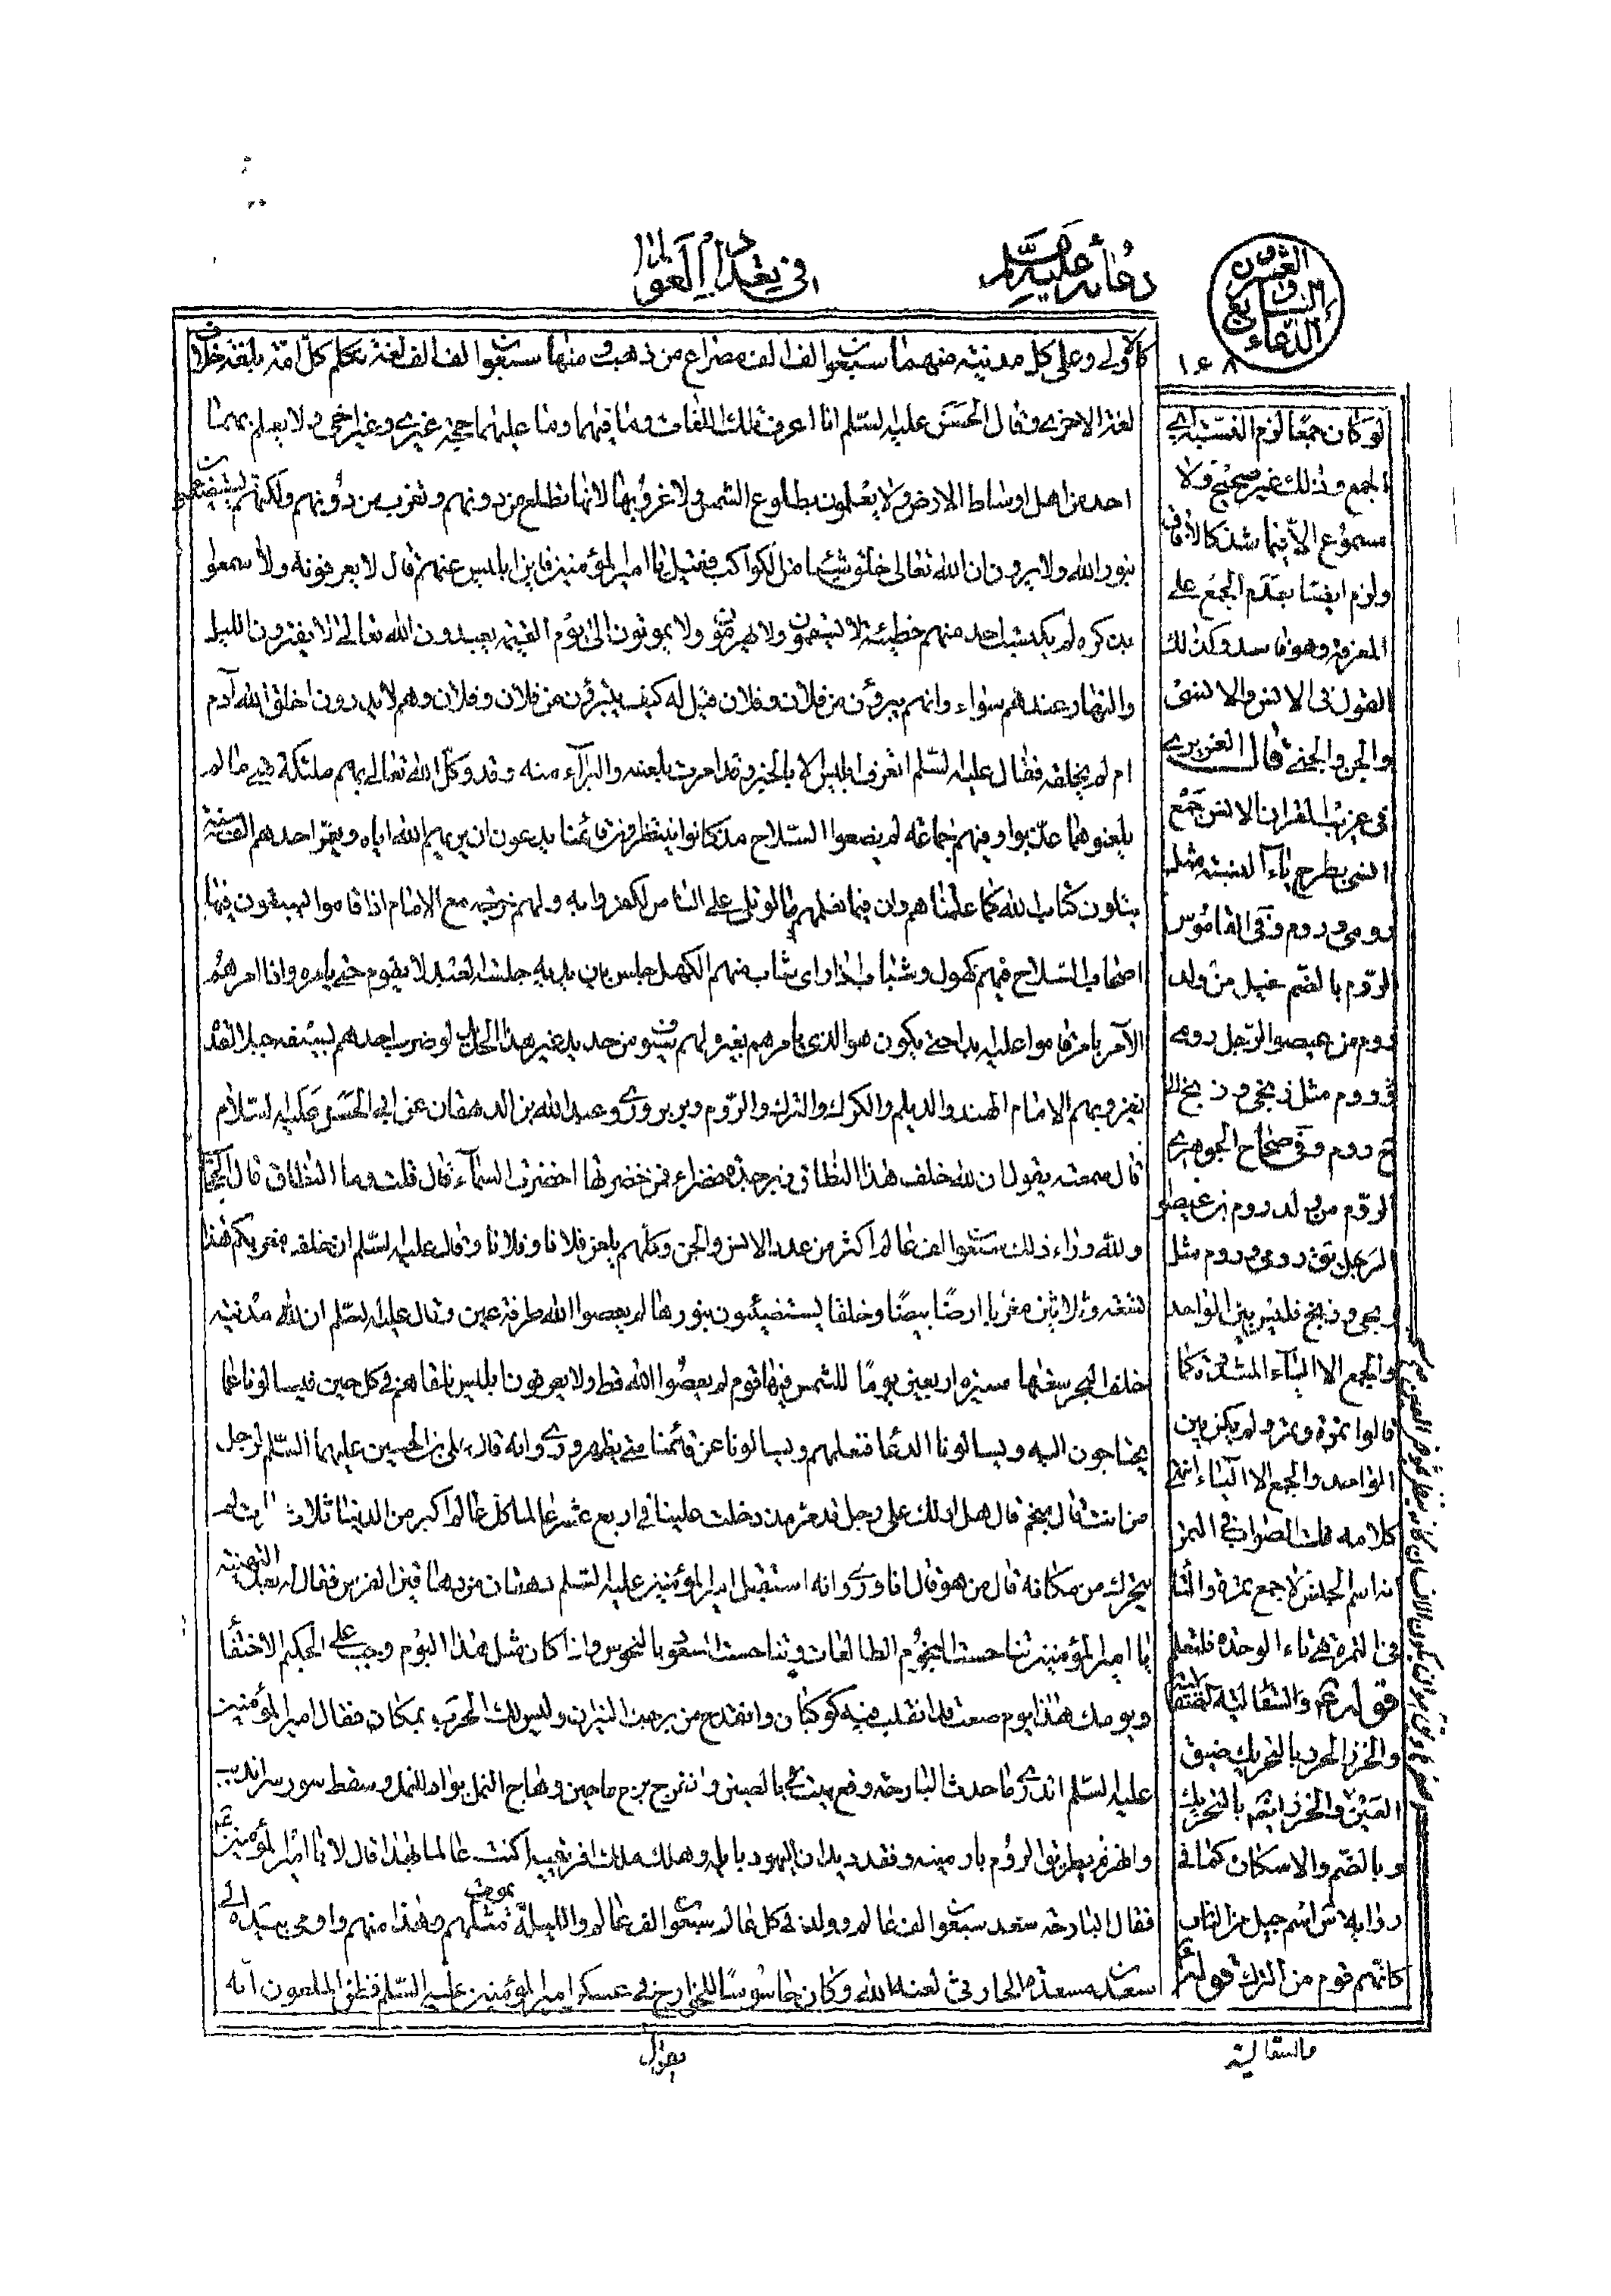 الدعاء السابع والعشرون
دعائه عليه السلم
في تعداد العوالم
١٤٨
كالاولى وعلى كل مدينة منهما سبعون الف الف مصراع من ذهب وفيها سبعون الف الف لغة تتكلم كل امة بلغة خلاف
لغة الاخرى وقال الحسن عليه السلم انا اعرف تلك اللغات وما فيهما وما عليهما حجة غيري وغير اخي ولا يعلم بهما
احد من اهل اوساط الارض ولا يعلمون بطلوع الشمس ولا غروبها لانها تطلع من دونهم وتغرب من دونهم ولكنهم يستضيئون
بنور الله ولا يرون ان الله تعالى خلق شيئا من الكواكب فقيل يا امير المؤمنين فاين ابليس عنهم قال لا يعرفونه ولا سمعوا
بذكره لم يكتسب احد منهم خطيئة لا يسقمون ولا يهرمون ولا يموتون الى يوم القيمة يعبدون الله تعالى لا يفترون الليل
والنهار عندهم سواء وانهم يبرؤن من فلان وفلان قيل له كيف يتبرؤن من فلان وفلان وهم لا يدرون اخلق الله آدم
ام لم يخلقه فقال عليه السلم اتعرف ابليس الا بالخبر وقد امرت بلعنه والبرآء منه وقد وكل الله تعالى بهم ملئكة متى ما لم
يلعنوهما عذبوا وفيهم جماعة لم يضعوا السلاح مذ كانوا ينتظرون قائمنا يدعون ان يريهم الله اياه ويعمر احدهم الف سنة
يتلون كتاب الله كما علمناهم وان فيما نعلمهم ما لو تلي على الناس لكفروا به ولهم خرجة مع الامام اذا قاموا يسبقون فيها
اصحاب السلاح فيهم كهول وشباب اذا راى شاب منهم الكهل جلس بين يديه جلسة العبد لا يقوم حتى يامره واذا امرهم
الآمر بامر قاموا عليه ابدا حتى يكون هو الذي يامرهم بغيره لهم سيوف من حديد غير هذا الحديد لو ضرب احدهم بسيفه جبلا لقده
يغزو بهم الامام الهند والديلم والكرك والترك والروم وبربر وروى عبد الله بن الدهقان عن ابي الحسن عليه السلام
قال سمعته يقول ان لله خلف هذا النطاق زبرجدة خضراء فمن خضرتها اخضرت السماء قال قلت وما النطاق قال الحجاب
ولله وراء ذلك سبعون الف عالم اكثر من عدد الانس والجن وكلهم يلعن فلانا وفلانا وقال عليه السلم ان خلف مغربكم هذا
تسعة وثلاثين مغربا ارضا بيضا وخلقا يستضيئون بنورها لم يعصوا الله طرفة عين وقال عليه السلم ان لله مدينة
خلف البحر سعتها مسيرة اربعين يوما للشمس فيها قوم لم يعصوا الله قط ولا يعرفون ابليس نلقاهم في كل حين فيسالونا عما
يحتاجون اليه ويسالونا الدعا فنعلمهم ويسالونا عن قائمنا متى يظهر وروى انه قال علي بن الحسين عليهما السلم لرجل
من انت قال منجم قال هل ادلك على رجل قد مر مذ دخلت علينا في اربع عشر عالما كل عالم اكبر من الدنيا ثلاث مرات لم
يتحرك من مكانه قال من هو قال انا وروى انه استقبل امير المؤمنين عليه السلم دهقان من دهاقين الفرس فقال له بعد التهنية
يا امير المؤمنين تناحست النجوم الطالعات وتناحست السعود بالنحوس واذا كان مثل هذا اليوم وجب على الحكيم الاختفا
ويومك هذا يوم صعب قد انقلب فيه كوكبان وانقدح من برجك النيران وليس لك الحرب بمكان فقال امير المؤمنين
عليه السلم اتدري ما حدث البارحة وقع بيت بالصين وانفرج برج ماجين وهاج النمل بوادي النمل وسقط سور سرانديب
وانهزم بطريق الروم بارمينة وفقد ديان اليهود بايلة وهلك ملك افريقية اكنت عالما بهذا قال لا يا امير المؤمنين
فقال البارحة سعد سبعون الف عالم وولد في كل عالم سبعون الف عالم والليلة يموت مثلهم وهذا منهم واومى بيده الى
سعد بن مسعدة الحارثي لعنه الله وكان جاسوسا للخوارج في عسكر امير المؤمنين عليه السلم فظن الملعون انه
يقول
لو كان جمعا لزم النسبة الى
الجمع وذلك غير صحيح ولا
مسموع الا فيما شذ كالآفاقي
ولزم ايضا تقدم الجمع على
المعرفة وهو فاسد وكذلك
القول في الانس والانسي
والجن والجني قال العزيزي
في غريب القران الانس جمع
انسي بطرح ياء النسبة مثل
رومي وروم وفي القاموس
الروم بالضم جيل من ولد
روم بن عيصو الرجل رومي
ج روم وفي صحاح الجوهري
الروم من ولد روم بن عيصو
الرجل يق رومي وروم مثل
زنجي وزنج فليس بين الواحد
والجمع الا الياء المشددة كما
قالوا تمرة وتمر ولم يكن بين
الواحد والجمع الا الهاء انتهى
كلامه قلت الصواب في التمر
انه اسم الجنس لا جمع تمرة والتا
في التمرة هي تاء الوحدة فلتعلم
قوله والسقالبة
والخزر الخزر بالتحريك ضيق
العين والخزر ايضا بالتحريك
وبالضم والاسكان كما في
رواية س اسم جيل من الناس
كانهم قوم من الترك قوله
والسقالبة